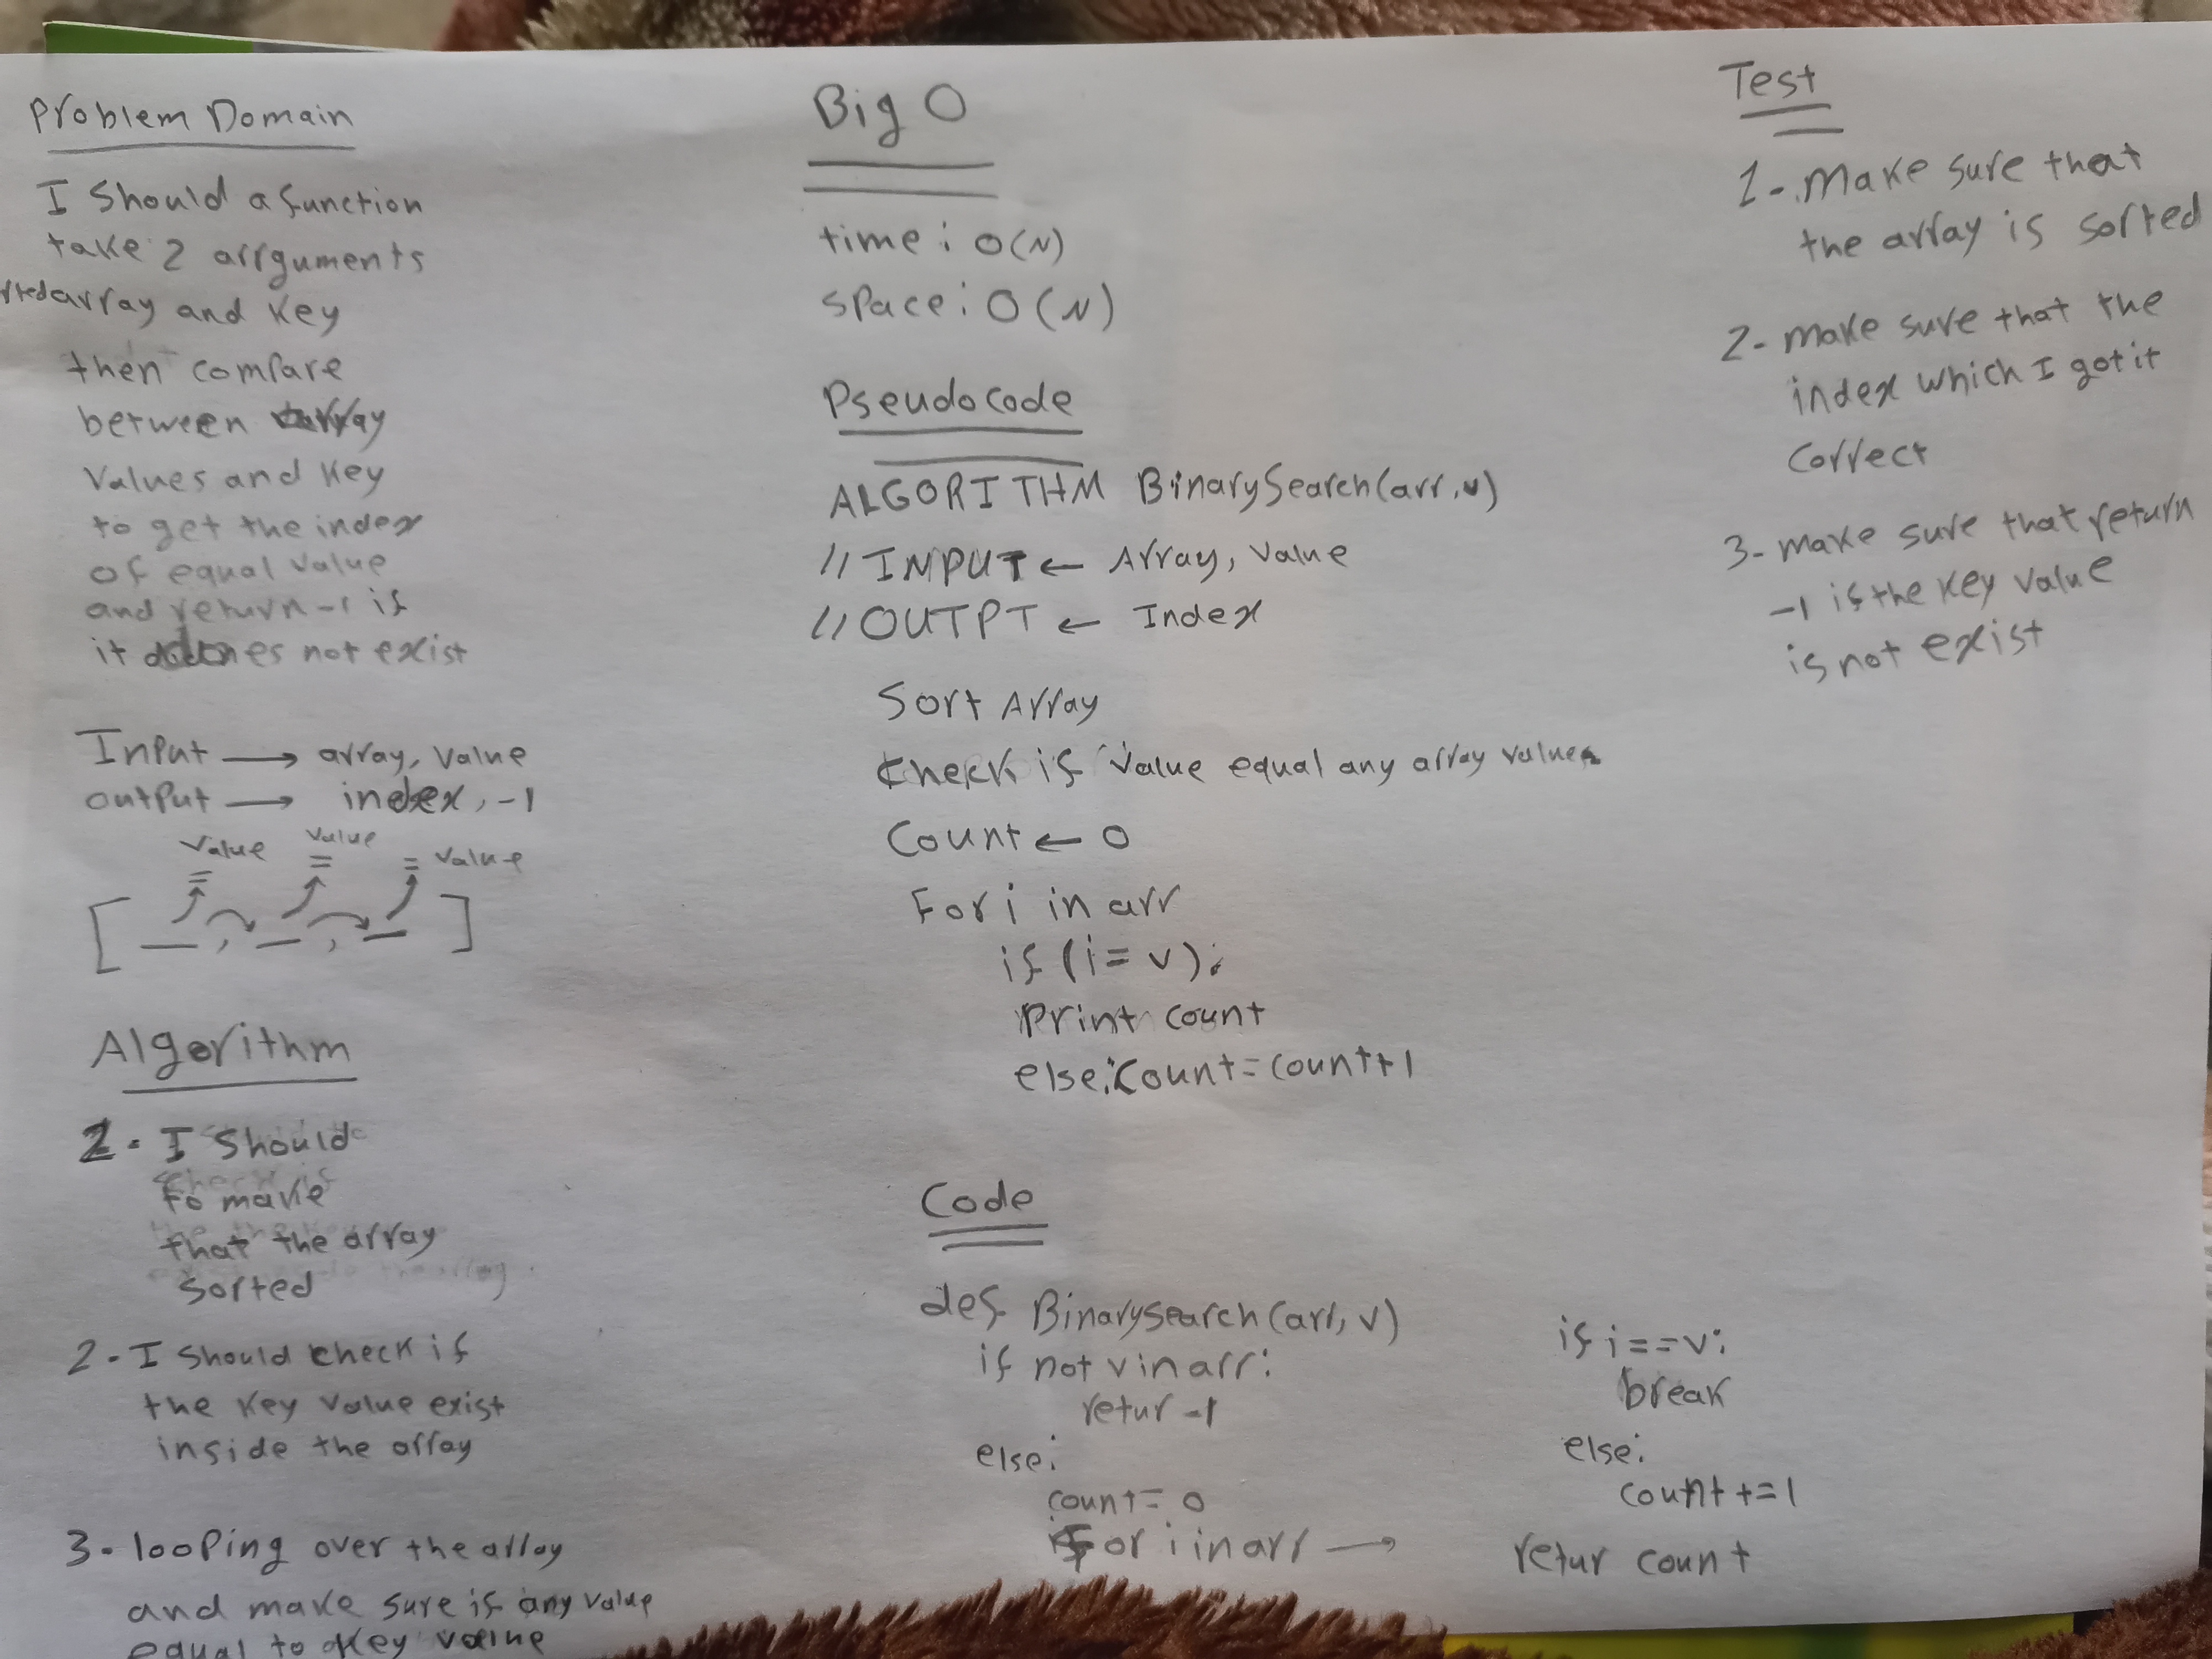 Problem Domain
I should a function
take 2 arrguments
array and key
then compare
between array
values and key
to get the index
of equal value
and return -1 if
it does not exist
Input → array, value
output → index, -1
value value = value
= =
[ _ , _ , _ ]
Algorithm
2. I should
to make
that the array
sorted
2 - I should check if
the key value exist
inside the array
3 - looping over the array
and make sure if any value
equal to key value
Big O
time : O(N)
space : O(N)
Pseudocode
ALGORITHM BinarySearch(arr, v)
// INPUT ← Array, value
// OUTPT ← Index
Sort Array
check if value equal any array values
Count ← 0
For i in arr
if (i = v):
print count
else: count = count+1
Code
def BinarySearch(arr, v)
if not v in arr:
retur -1
else:
count = 0
for i in arr →
if i == v:
break
else:
count += 1
retur count
Test
1 - Make sure that
the array is sorted
2 - make sure that the
index which I got it
correct
3 - make sure that return
-1 is the key value
is not exist